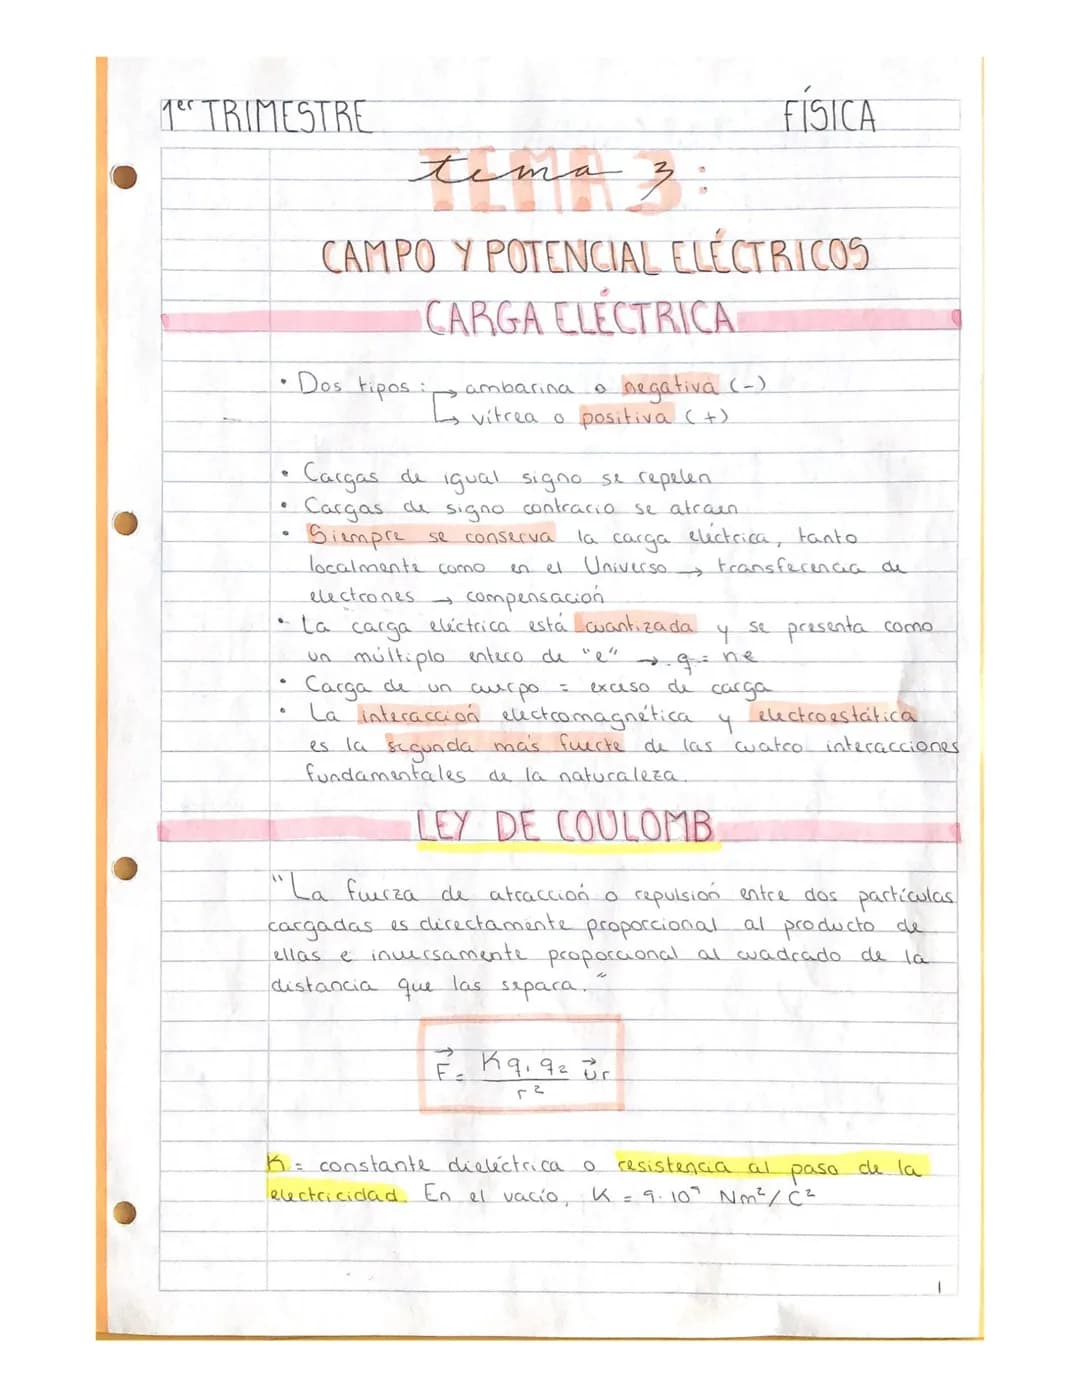 1er TRIMESTRE FÍSICA
TEMA 3:
tema 3:
CAMPO Y POTENCIAL ELÉCTRICOS
CARGA ELÉCTRICA
• Dos tipos: → ambarina o negativa (-)
↳ vítrea o positiva (+)
• Cargas de igual signo se repelen
• Cargas de signo contrario se atraen
• Siempre se conserva la carga eléctrica, tanto
localmente como en el Universo → transferencia de
electrones → compensación
• La carga eléctrica está cuantizada y se presenta como
un múltiplo entero de "e" → q = ne
• Carga de un cuerpo = exceso de carga
• La interacción electromagnética y electroestática
es la segunda más fuerte de las cuatro interacciones
fundamentales de la naturaleza.
LEY DE COULOMB
"La fuerza de atracción o repulsión entre dos partículas
cargadas es directamente proporcional al producto de
ellas e inversamente proporcional al cuadrado de la
distancia que las separa."
F⃗ = K q₁ q₂ u⃗r
r²
K = constante dieléctrica o resistencia al paso de la
electricidad. En el vacío, K = 9·10⁹ Nm²/C²
1